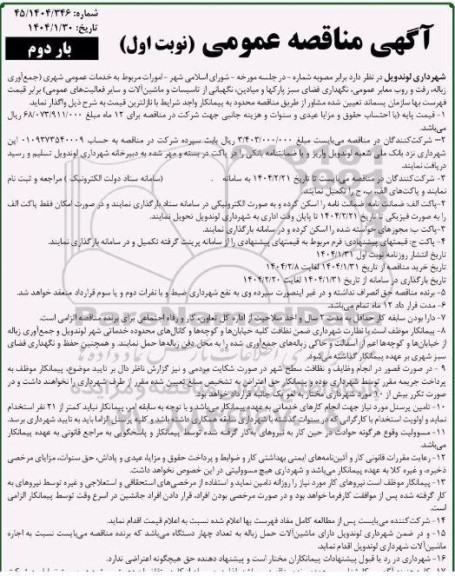 شماره: ۴۵/۱۴۰۴/۳۴۶
تاریخ: ۱۴۰۴/۱/۳۰
بار دوم
آگهی مناقصه عمومی (نوبت اول)
شهرداری لوندویل در نظر دارد برابر مصوبه شماره - در جلسه مورخه - شورای اسلامی شهر - امورات مربوط به خدمات عمومی شهری (جمع‌آوری
زباله، رفت و روب معابر عمومی، نگهداری فضای سبز پارکها و میادین، نگهبانی از تاسیسات و ماشین‌آلات و سایر فعالیت‌های عمومی) برابر قیمت
فهرست بها سازمان پسماند تعیین شده مشاور از طریق مناقصه محدود به پیمانکار واجد شرایط با نازلترین قیمت به شرح ذیل واگذار نماید.
۱- قیمت پایه (با احتساب حقوق و مزایا عیدی و سنوات و هزینه جانبی جهت شرکت در مناقصه برای ۱۲ ماه مبلغ ۶۸/۰۷۳/۹۱۱/۰۰۰ ریال
می‌باشد.
۲- شرکت‌کنندگان در مناقصه می‌بایست مبلغ ۳/۴۰۳/۰۰۰/۰۰۰ ریال بابت سپرده شرکت در مناقصه به حساب ۰۱۰۹۳۷۳۵۴۰۰۰۹ این
شهرداری نزد بانک ملی شعبه لوندویل واریز و یا ضمانتنامه بانکی را در پاکت در بسته و مهر شده به دبیرخانه شهرداری لوندویل تسلیم و رسید
دریافت نمایند.
۳- شرکت‌کنندگان در مناقصه می‌بایست تا تاریخ ۱۴۰۴/۲/۲۱ به سامانه . (سامانه ستاد دولت الکترونیک) مراجعه و ثبت نام
نمایند و پاکت‌های الف، ب، ج را تکمیل نمایند.
۲- پاکت الف: ضمانت نامه ضمانت نامه را اسکن کرده و به صورت الکترونیکی در سامانه ستاد بارگذاری نمایند و در صورت امکان فقط پاکت الف
را به صورت فیزیکی تا تاریخ ۱۴۰۴/۲/۲۱ تا پایان وقت اداری به شهرداری لوندویل تحویل نمایند.
۳- پاکت ب: مجوزهای خواسته شده را اسکن کرده و در سامانه بارگذاری نمایند.
۴- پاکت ج: قیمتهای پیشنهادی: فرم مربوط به قیمتهای پیشنهادی را از سامانه پرینت گرفته تکمیل و در سامانه بارگذاری نمایند.
تاریخ انتشار روزنامه نوبت اول ۱۴۰۴/۱/۳۱
تاریخ خرید مناقصه از تاریخ ۱۴۰۴/۱/۳۱ لغایت ۱۴۰۴/۲/۸
تاریخ بارگذاری در سامانه از تاریخ ۱۴۰۴/۱/۳۱ لغایت ۱۴۰۴/۲/۲۰
۵- برنده مناقصه حق انصراف نداشته و در غیر اینصورت سپرده وی به نفع شهرداری ضبط و با نفرات دوم و یا سوم قرارداد منعقد خواهد شد.
۶- مدت قرارداد ۱۲ ماه تمام می‌باشد.
۷- دارا بودن سابقه کار حداقل به مدت ۲ سال و اخذ صلاحیت از اداره کل تعاون، کار و رفاه اجتماعی برای برنده مناقصه الزامی است.
۸- پیمانکار موظف است با نظارت شهرداری ضمن نظافت کلیه خیابان‌ها و کوچه‌ها و کانال‌های محدوده خدماتی شهر لوندویل و جمع‌آوری زباله
از خیابان‌ها و کوچه‌ها اعم از آسفالت و خاکی زباله‌های جمع‌آوری شده را به محل دفن زباله‌ها حمل نمایند. و همچنین حفظ و نگهداری فضای
سبز شهری بر عهده پیمانکار گذاشته می‌شود.
۹- در صورت قصور در انجام وظایف و نظافت سطح شهر در صورت شکایت مردمی و نیز گزارش ناظر دال بر تایید موضوع، پیمانکار موظف به
پرداخت جریمه مقرر توسط شهرداری بوده و پیمانکار حق اعتراض به تشخیص مبلغ تعیین شده مقرر از طرف شهرداری را نخواهند داشت و در
صورت تکرر بیش از ۱۰ مورد شهرداری مختار به لغو یک جانبه قرارداد خواهد بود.
۱۰- تامین پرسنل مورد نیاز جهت انجام کارهای خدماتی به عهده پیمانکار می‌باشد و با توجه به سابقه امر، پیمانکار نباید کمتر از ۲۱ نفر استخدام
نماید و اولویت استخدام با کارگرانی که در سنوات گذشته با شهرداری همکاری داشته‌اند می‌باشد و کلیه پرسنل الزاما باید به تایید شهرداری برسد.
۱۱- مسوولیت وقوع هرگونه حوادث در حین کار به نیروهای به‌کار گرفته شده توسط پیمانکار و پاسخگویی به مراجع قانونی به عهده پیمانکار
می‌باشد.
۱۲- رعایت مقررات قانونی کار و آئین‌نامه‌های ایمنی بهداشتی کار و ضوابط و پرداخت حقوق و مزایا، عیدی و پاداش، حق سنوات، مزایای مرخصی
ذخیره، و غیره کلا به عهده پیمانکار می‌باشد و شهرداری هیچ مسوولیتی در این خصوص نخواهد داشت.
۱۳- پیمانکار موظف است نیروهای کار مورد نیاز را روزانه تامین نماید و استفاده از مرخصی‌های استحقاقی و استعلاجی و غیره توسط نیروهای به
کار گرفته شده پس از موافقت کارفرما خواهد بود و در صورت مرخصی بودن افراد، قرار دادن افراد جانشین در اسرع وقت توسط پیمانکار الزامی
است.
۱۴- شرکت‌کننده می‌بایست پس از مطالعه کامل مفاد فهرست بها اعلام شده نسبت به اعلام قیمت اقدام نماید.
۱۵- و در ضمن شهرداری لوندویل دارای ماشین‌آلات حمل زباله به تعداد چهار دستگاه می‌باشد که برنده مناقصه می‌بایست نسبت به اجاره
ماشین‌آلات شهرداری لوندویل اقدام نماید.
۱۶- شهرداری در رد یا قبول پیشنهادات پیمانکاران مختار است و پیشنهاد دهنده حق هیچگونه اعتراضی ندارد.